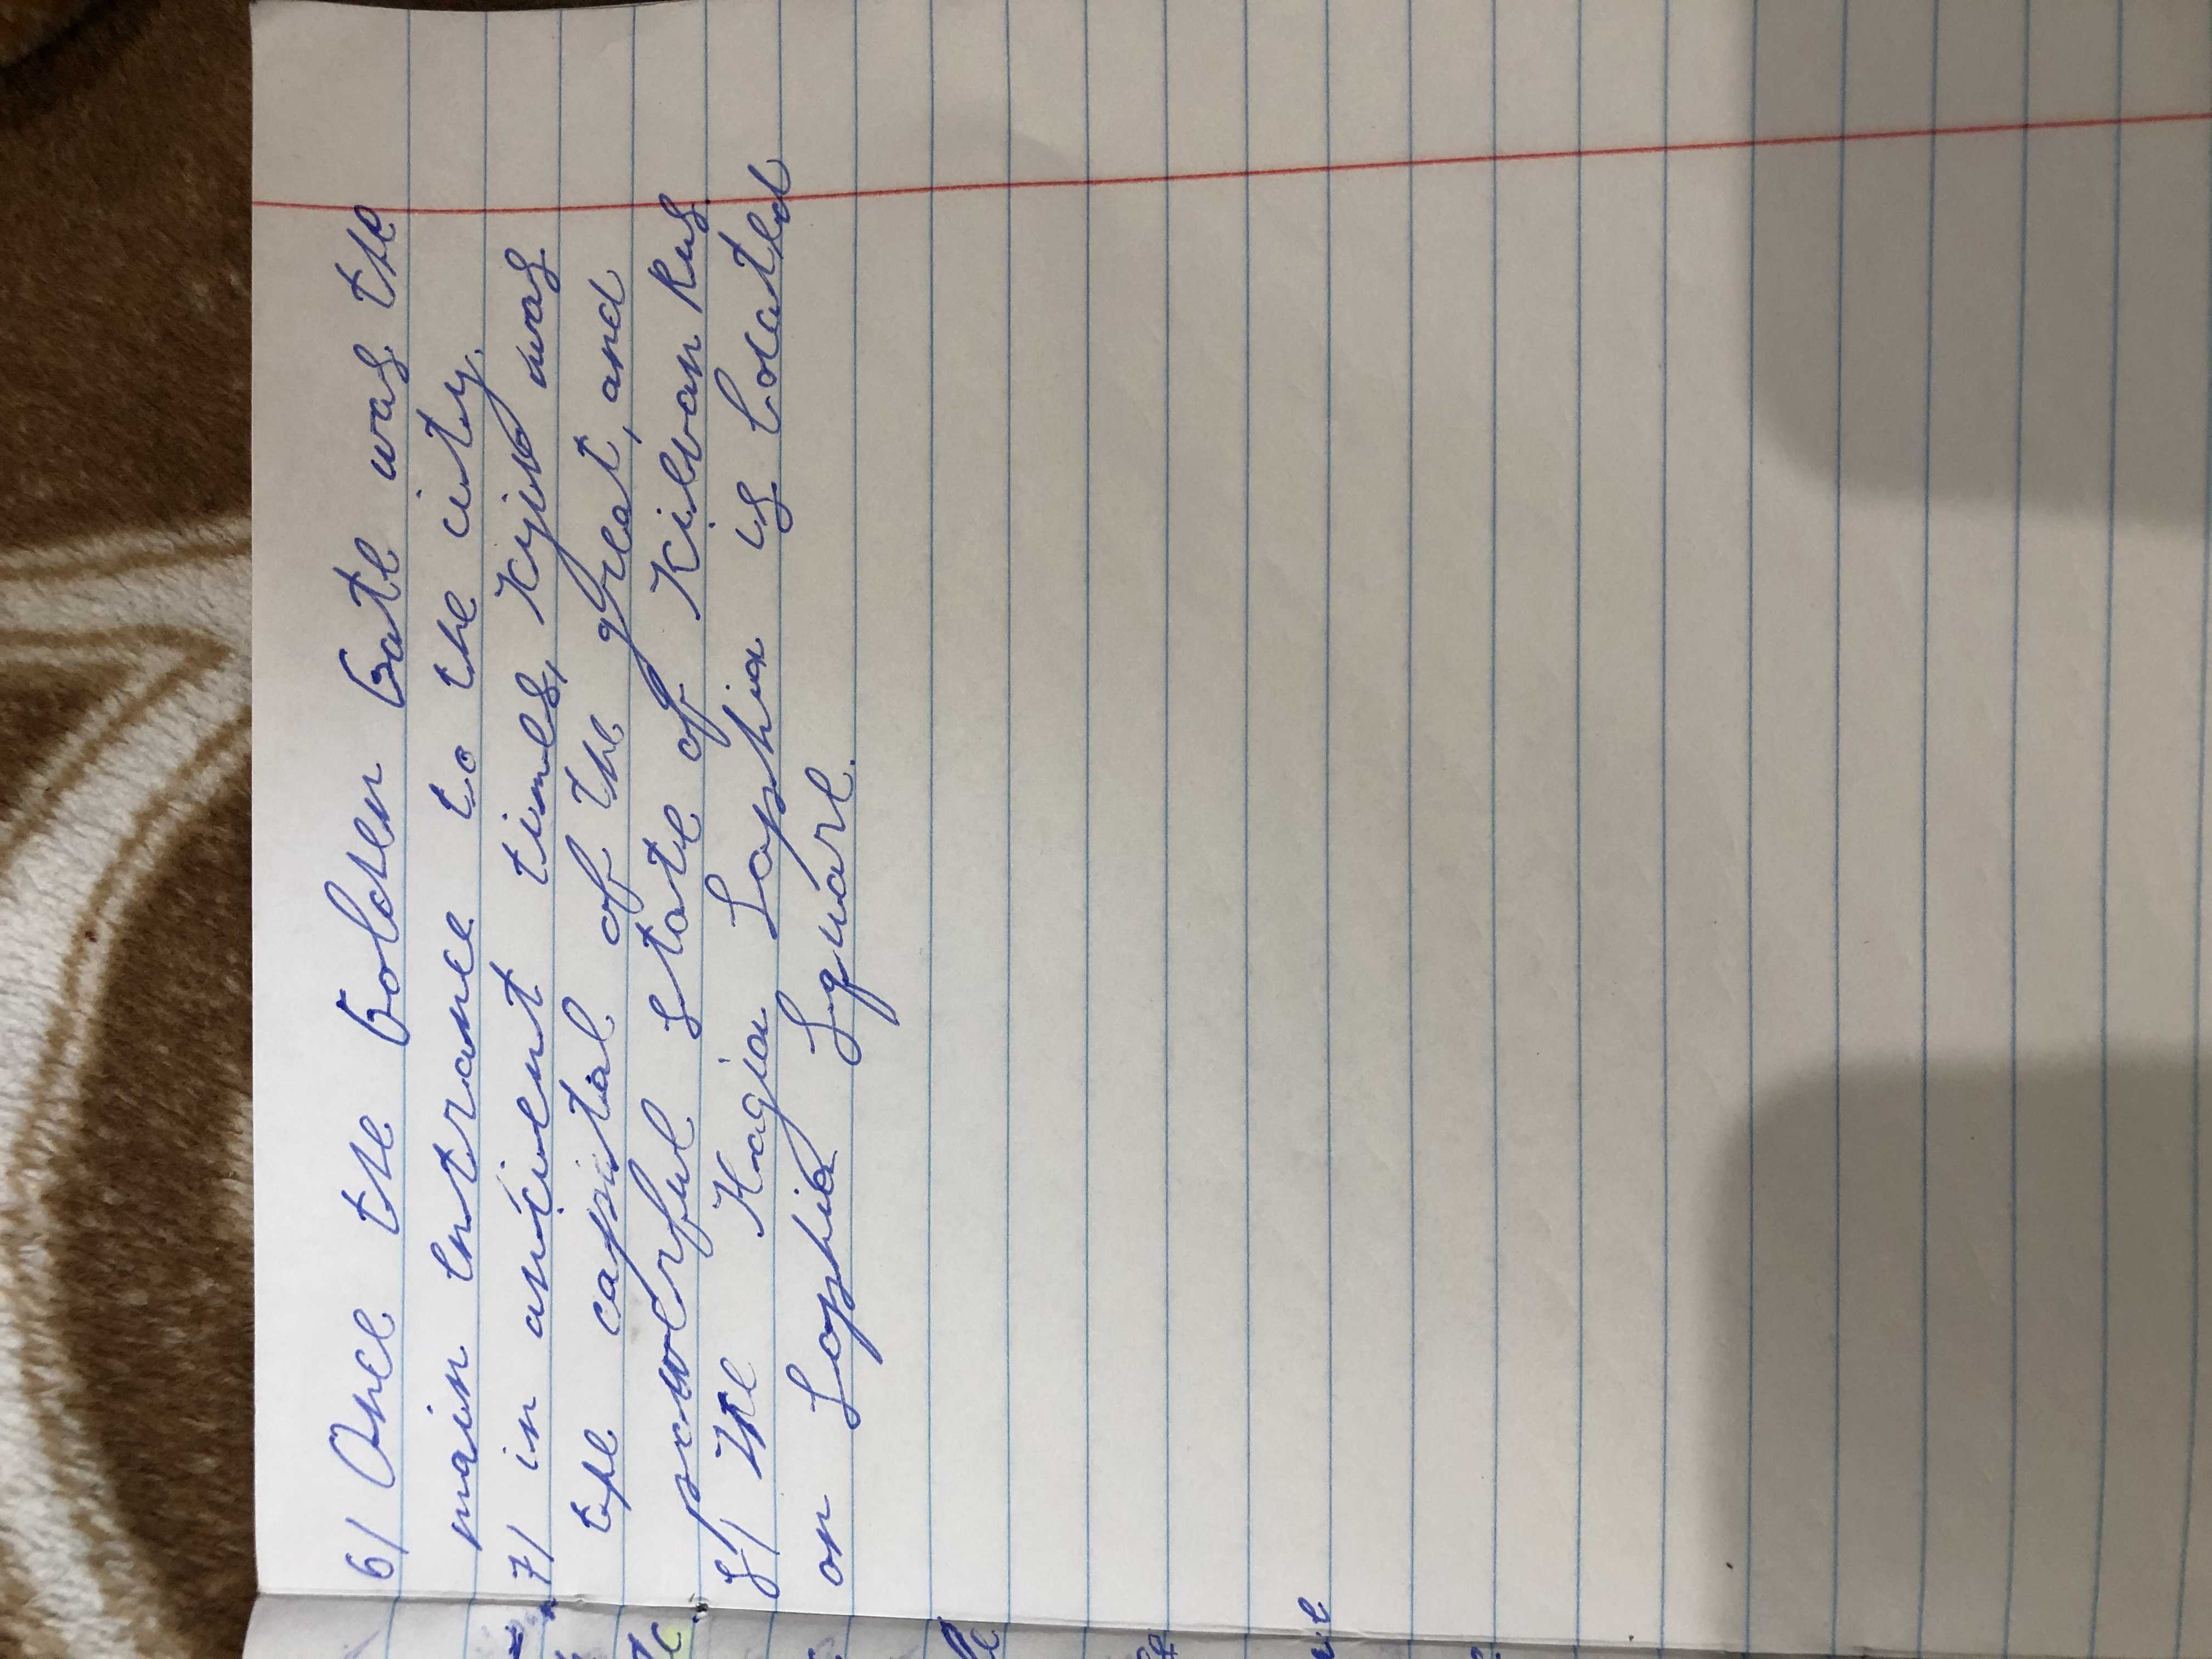 6) Once the Golden Gate was the
main entrance to the city.
7) in ancient times, Kyiv was
the capital of the great, and
powerful state of Kievan Rus.
8) The Hagia Sophia is located
on Sophia Square.